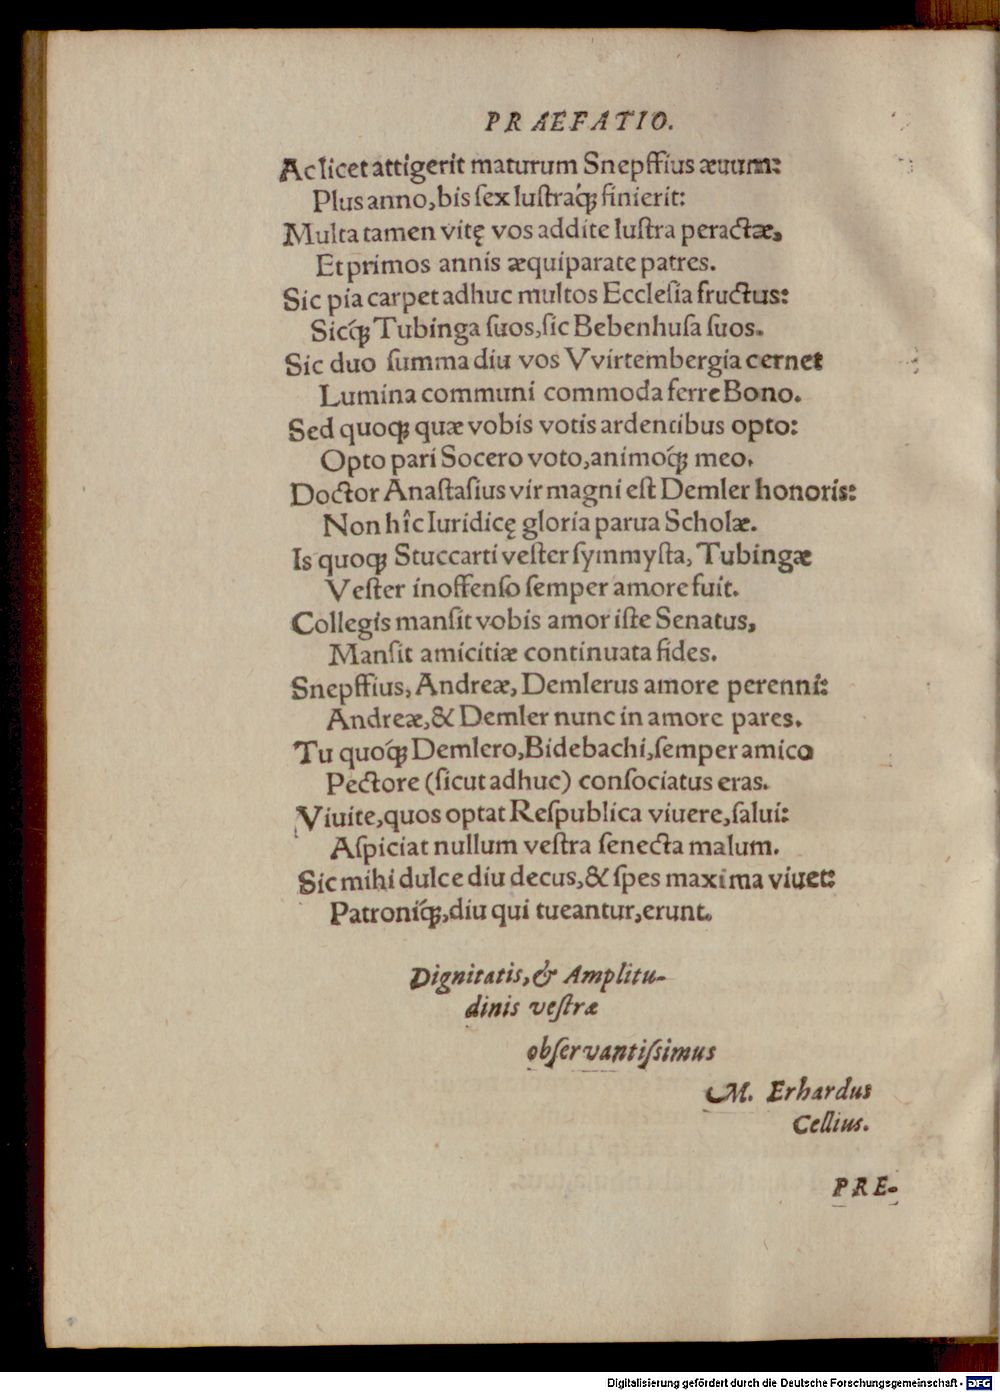 PRAEFATIO.
Ac licet attigerit maturum Snepffius æuum:
Plus anno, bis ſex luſtraq́ꝫ finierit:
Multa tamen vitę vos addite luſtra peractæ,
Et primos annis æquiparate patres.
Sic pia carpet adhuc multos Eccleſia fructus:
Sicq́ꝫ Tubinga ſuos, ſic Bebenhuſa ſuos.
Sic duo ſumma diu vos Vvirtembergia cernet
Lumina communi commoda ferre Bono.
Sed quoqꝫ quæ vobis votis ardentibus opto:
Opto pari Socero voto, animoq́ꝫ meo.
Doctor Anaſtaſius vir magni eſt Demler honoris:
Non hîc Iuridicę gloria parua Scholæ.
Is quoqꝫ Stuccarti veſter ſymmyſta, Tubingæ
Veſter inoffenſo ſemper amore fuit.
Collegis manſit vobis amor iſte Senatus,
Manſit amicitiæ continuata fides.
Snepffius, Andreæ, Demlerus amore perenni:
Andreæ, & Demler nunc in amore pares.
Tu quoq́ꝫ Demlero, Bidebachi, ſemper amico
Pectore (ſicut adhuc) conſociatus eras.
Viuite, quos optat Reſpublica viuere, ſalui:
Aſpiciat nullum veſtra ſenecta malum.
Sic mihi dulce diu decus, & ſpes maxima viuet:
Patroniq́ꝫ, diu qui tueantur, erunt.
Dignitatis, & Amplitu-
dinis veſtræ
obſervantiſsimus
M. Erhardus
Cellius.
PRE-
Digitalisierung gefördert durch die Deutsche Forschungsgemeinschaft - DFG